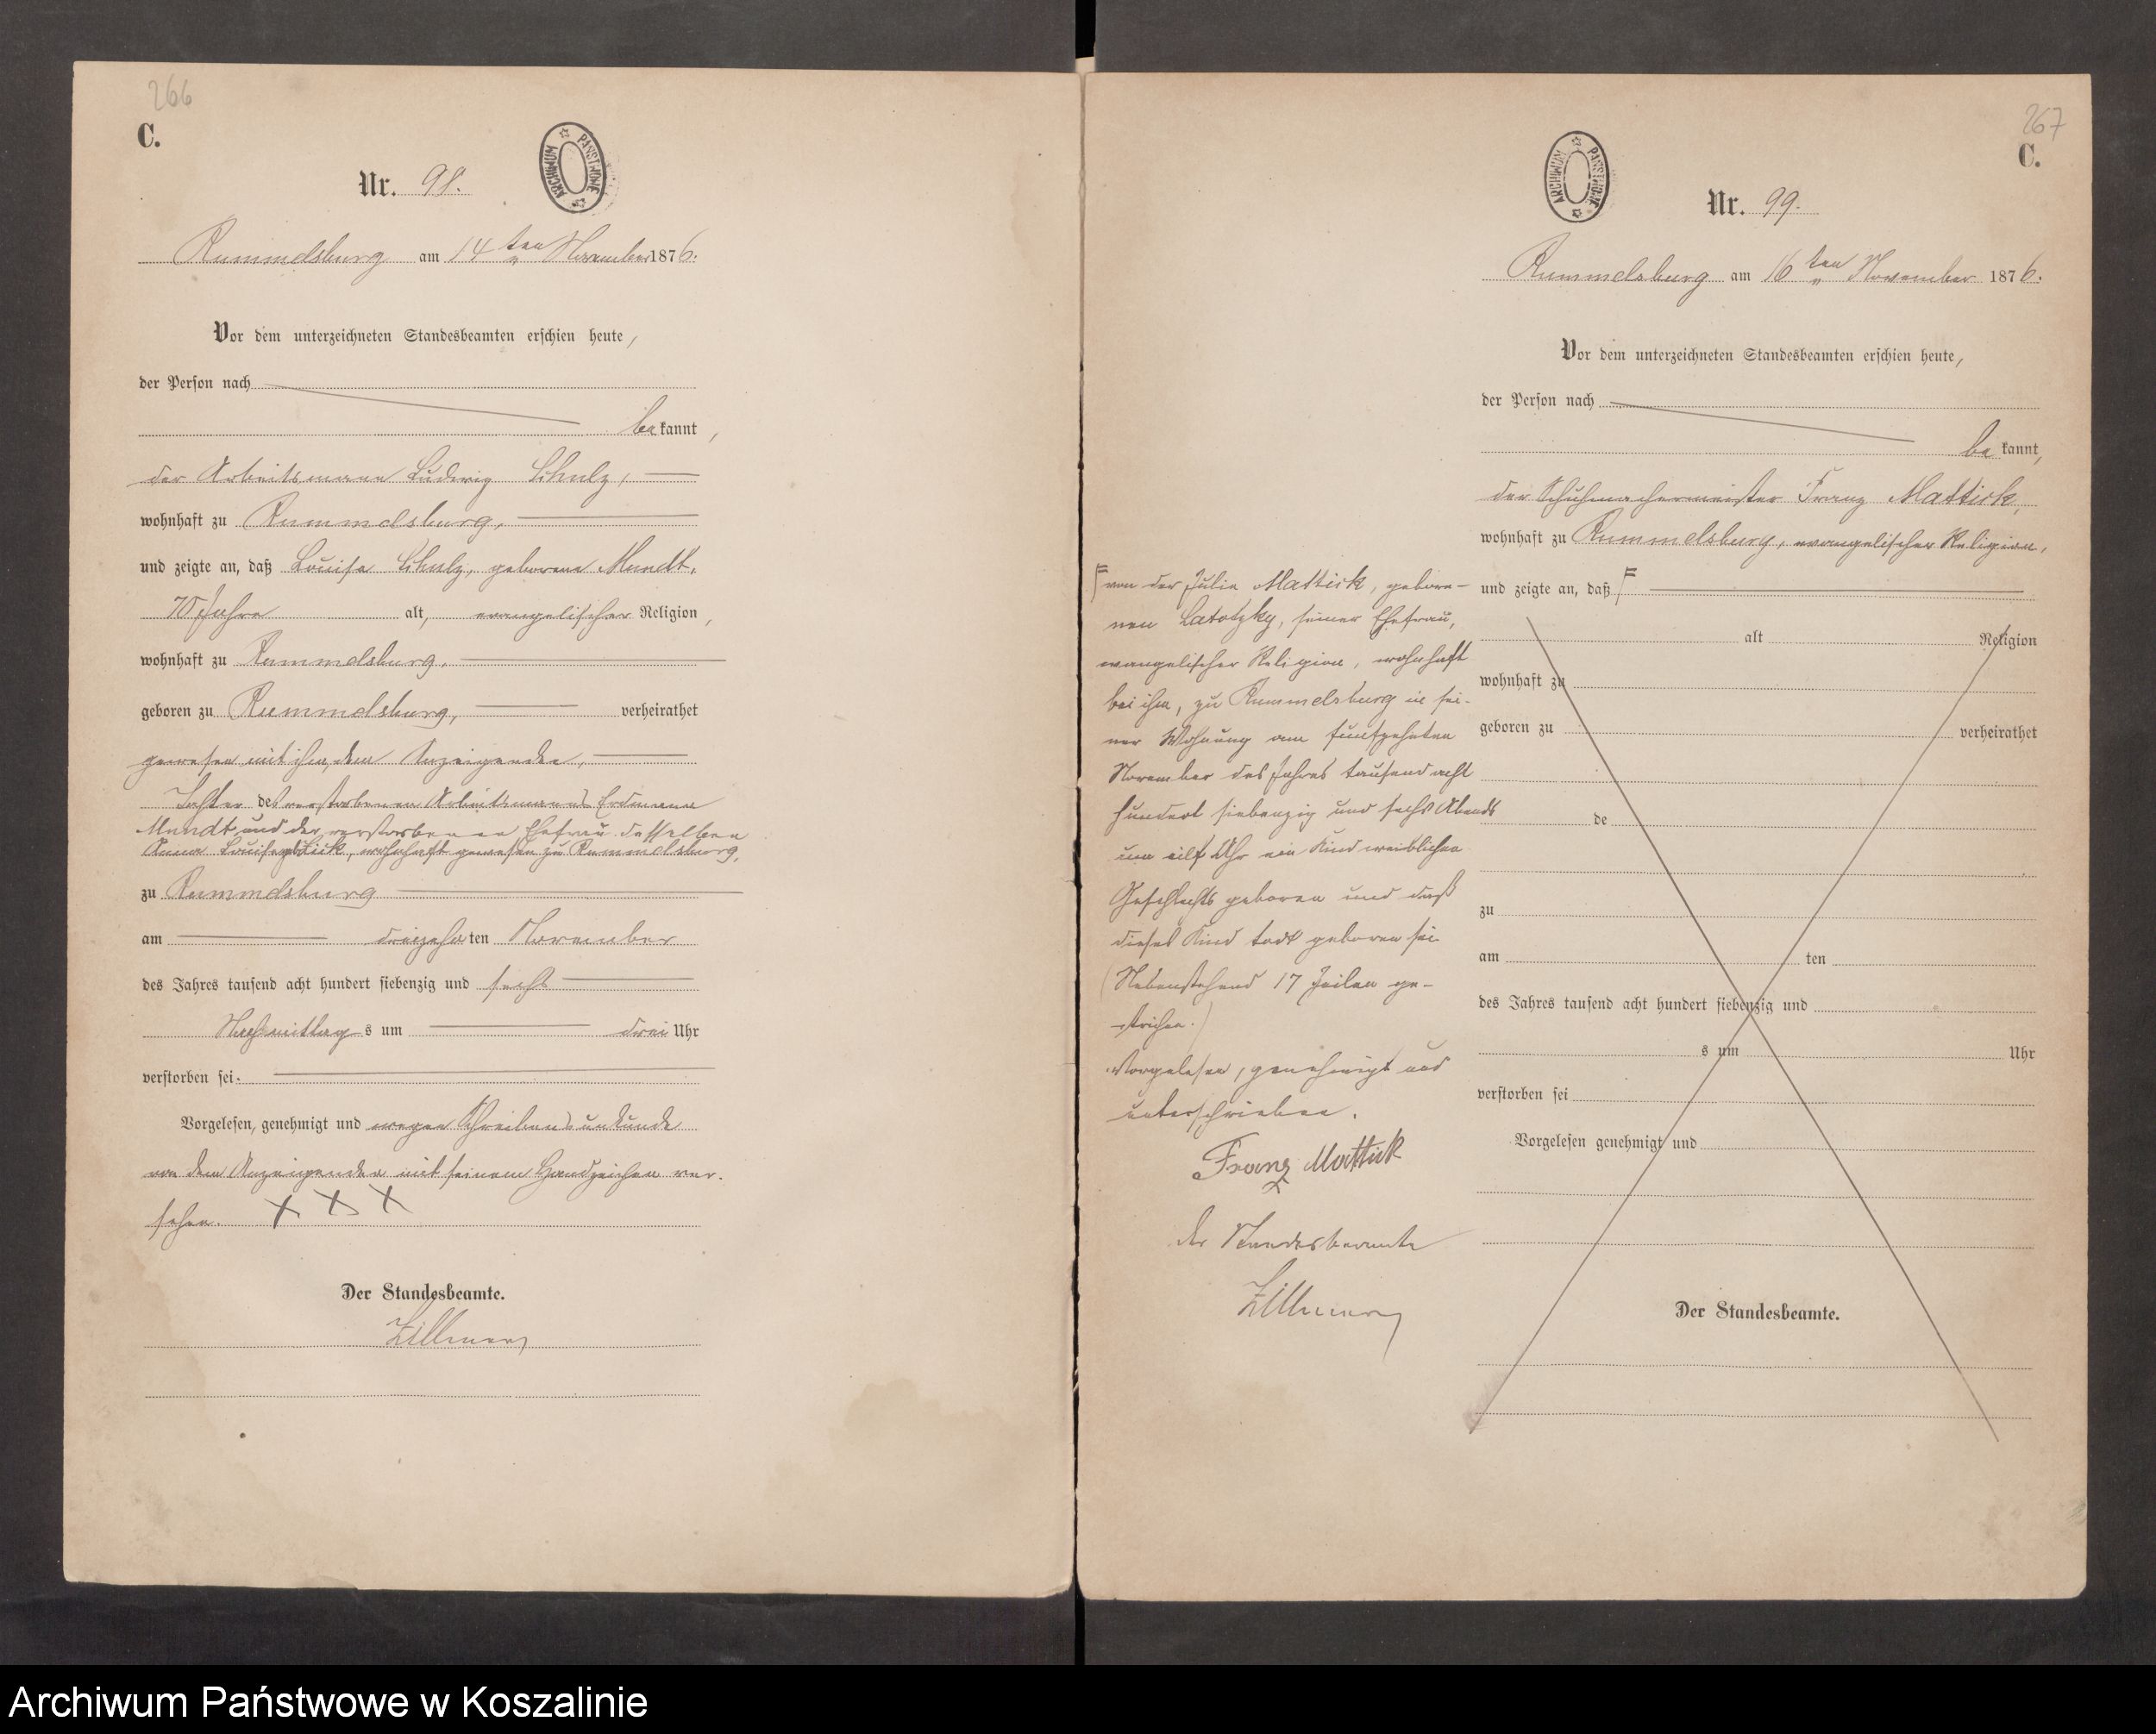 266
C.
ARCHIWUM PAŃSTWOWE
Nr. 98.
Rummelsburg am 14 ten November 1876.
Vor dem unterzeichneten Standesbeamten erschien heute,
der Person nach
bekannt,
der Arbeitsmann Ludwig Schulz,
wohnhaft zu Rummelsburg,
und zeigte an, daß Louise Schulz, geborene Mundt,
70 Jahre alt, evangelischer Religion,
wohnhaft zu Rummelsburg,
geboren zu Rummelsburg, verheirathet
gewesen mit ihm, dem Anzeigenden,
Tochter des verstorbenen Arbeitsmanns Erdmann
Mundt und der verstorbenen Ehefrau desselben
Anna Louise geb. wohnhaft gewesen zu Rummelsburg,
zu Rummelsburg
am dreizehnten November
des Jahres tausend acht hundert siebenzig und sechs
Nachmittags um drei Uhr
verstorben sei.
Vorgelesen, genehmigt und wegen Schreibensunkunde
von dem Anzeigenden mit seinem Handzeichen ver-
sehen. X X X
Der Standesbeamte.
Zillmer
267
C.
ARCHIWUM PAŃSTWOWE
Nr. 99.
Rummelsburg am 16 ten November 1876.
Vor dem unterzeichneten Standesbeamten erschien heute,
der Person nach
bekannt,
der Schuhmachermeister Franz Mattick,
wohnhaft zu Rummelsburg, evangelischer Religion,
und zeigte an, daß
alt Religion
wohnhaft zu
geboren zu verheirathet
de
zu
am ten
des Jahres tausend acht hundert siebenzig und
s um Uhr
verstorben sei
Vorgelesen genehmigt und
Der Standesbeamte.
von der Julie Mattick, gebore-
nen Latotzky, seiner Ehefrau,
evangelischer Religion, wohnhaft
bei ihm, zu Rummelsburg in sei-
ner Wohnung am fünfzehnten
November des Jahres tausend acht
hundert siebenzig und sechs Abends
um eilf Uhr ein Kind weiblichen
Geschlechts geboren und daß
dieses Kind todt geboren sei
(Nebenstehend 17 Zeilen ge-
strichen.)
Vorgelesen, genehmigt und
unterschrieben.
Franz Mattick
Der Standesbeamte
Zillmer
Archiwum Państwowe w Koszalinie